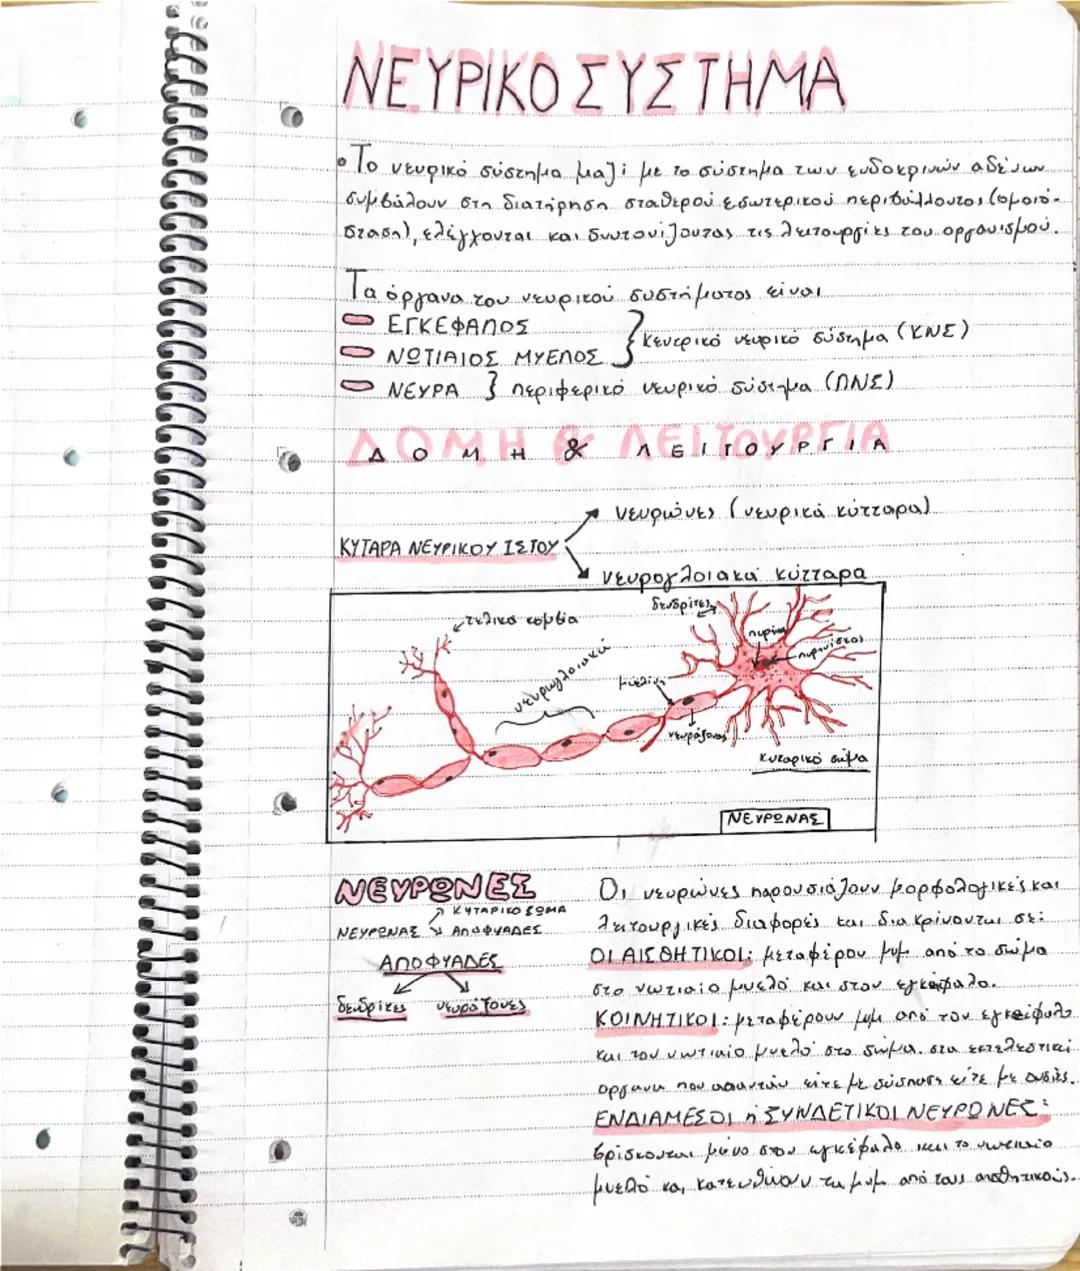 ΝΕΥΡΙΚΟ ΣΥΣΤΗΜΑ
• Το νευρικό σύστημα μαζί με το σύστημα των ενδοκρινών αδένων
συμβάλουν στη διατήρηση σταθερού εσωτερικού περιβάλλοντος (ομοιό-
σταση), ελέγχονται και συντονίζοντας τις λειτουργίες του οργανισμού.
Τα όργανα του νευρικού συστήματος είναι
ΕΓΚΕΦΑΛΟΣ
ΝΩΤΙΑΙΟΣ ΜΥΕΛΟΣ } κεντρικό νευρικό σύστημα (ΚΝΣ)
ΝΕΥΡΑ } περιφερικό νευρικό σύστημα (ΠΝΣ)
ΔΟΜΗ & ΛΕΙΤΟΥΡΓΙΑ
νευρώνες (νευρικά κύτταρα)
ΚΥΤΑΡΑ ΝΕΥΡΙΚΟΥ ΙΣΤΟΥ
νευρογλοιακά κύτταρα
δενδρίτες
τελικα κομβία
πυρήνα
πυρηνίσκος
νευρωγλοιακά
μυελίνη
νευράξονας
κυταρικό σώμα
ΝΕΥΡΩΝΑΣ
ΝΕΥΡΩΝΕΣ
ΚΥΤΑΡΙΚΟ ΣΩΜΑ
ΝΕΥΡΩΝΑΣ ΑΠΟΦΥΑΔΕΣ
ΑΠΟΦΥΑΔΕΣ
δενδρίτες νευράξονες
Οι νευρώνες παρουσιάζουν μορφολογικές και
λειτουργικές διαφορές και διακρίνονται σε:
ΟΙ ΑΙΣΘΗΤΙΚΟΙ: μεταφέρουν μυμ από το σώμα
στο νωτιαίο μυελό και στον εγκέφαλο.
ΚΟΙΝΗΤΙΚΟΙ: μεταφέρουν μυμ από τον εγκέφαλο
και τον νωτιαίο μυελό στο σώμα. στα εκτελεστικά
οργανα που απαντούν είτε με σύσπαση είτε με ουσίες.
ΕΝΔΙΑΜΕΣΟΙ ή ΣΥΝΔΕΤΙΚΟΙ ΝΕΥΡΩΝΕΣ:
βρίσκονται μόνο στον εγκέφαλο και το νωτιαίο
μυελό και κατευθύνουν τα μυμ από τους αισθητικούς.